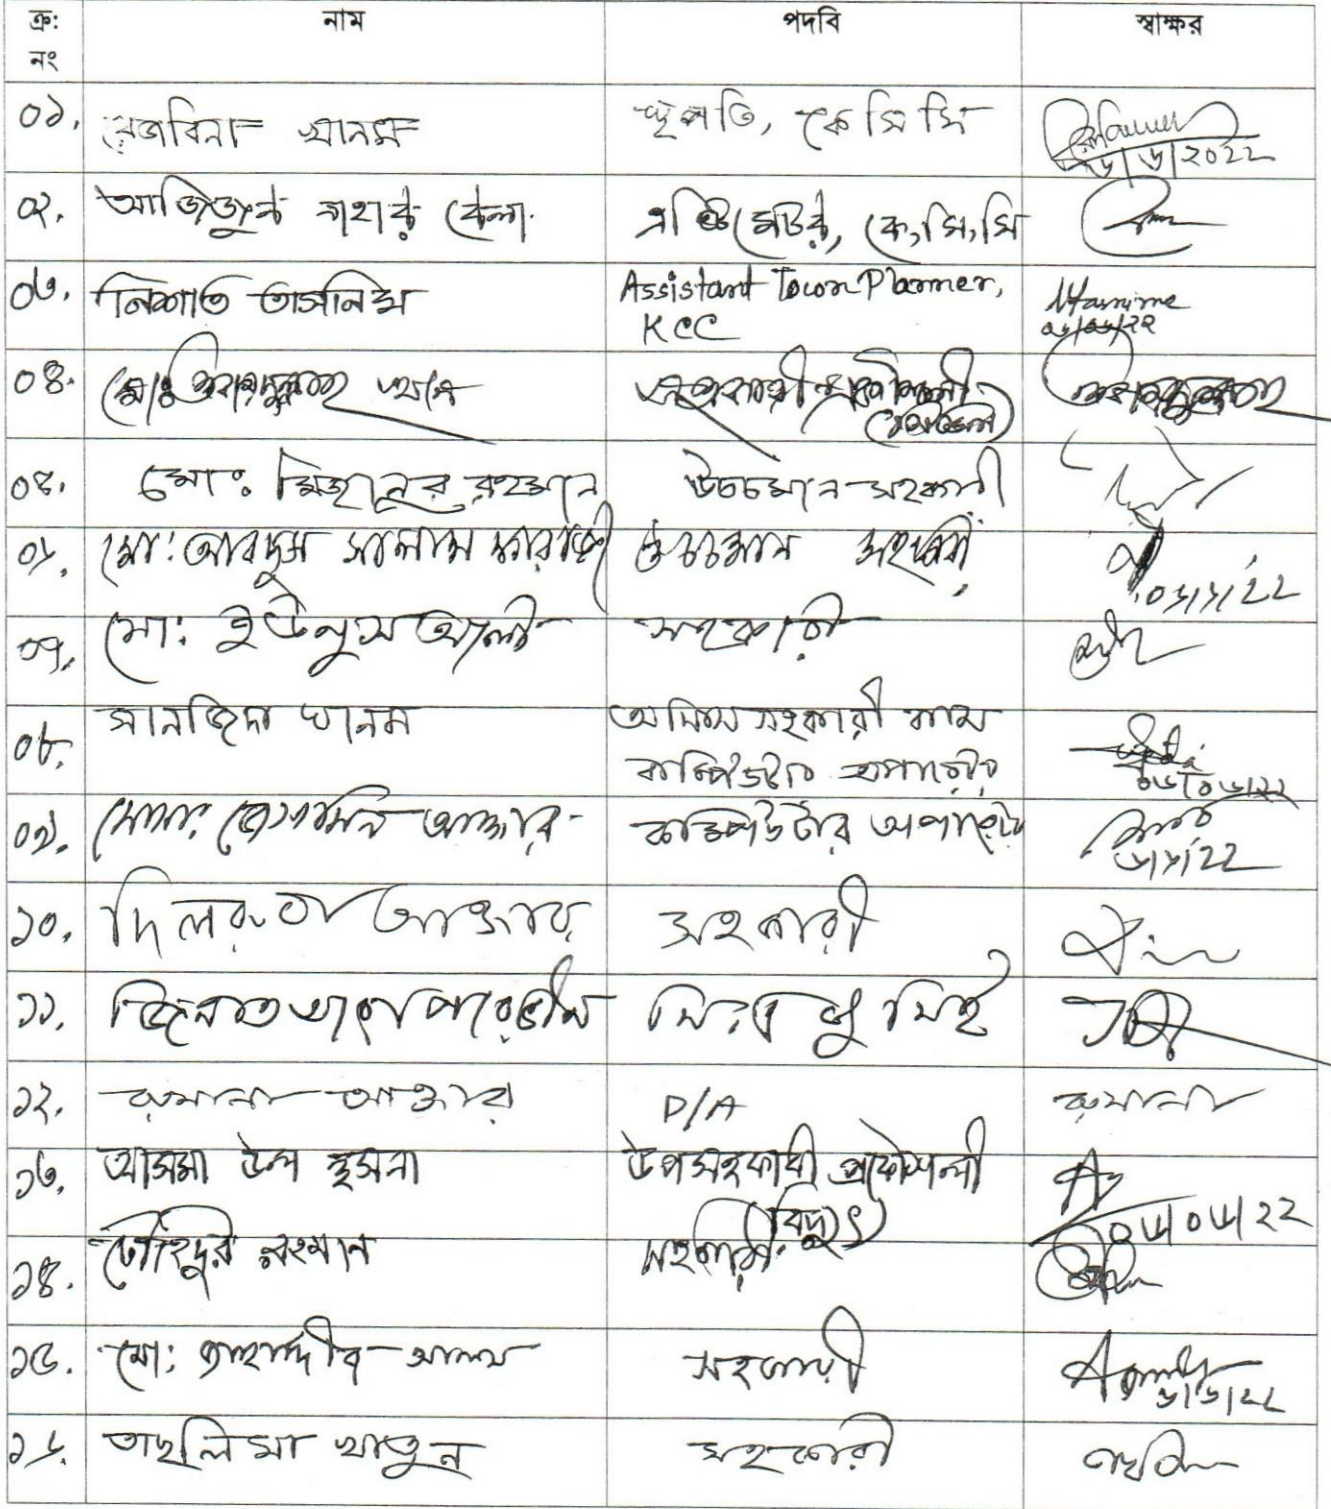 ক্র: নাম পদবি স্বাক্ষর
নং
০১. রেজবিনা খানম স্থপতি, কে সি সি
৬/৬/২০২২
০২. আজিজুন নাহার বেলা এস্টিমেটর, কে,সি,সি
০৩. নিশাত তাসনিম Assistant Town Planner,
KCC
০৬/০৬/২২
০৪. মোঃ খান সহকারী প্রকৌশলী
০৫. মোঃ মিজানুর রহমান উচ্চমান সহকারী
০৬. মো: আবদুস সালাম ফারাজী উচ্চমান সহকারী
০৬/৬/২২
০৭. মো: ইউনুস আলী সহকারী
০৮. সানজিদা খানম অফিস সহকারী কাম
কম্পিউটার অপারেটর
০৬/০৬/২২
০৯. মোসা: জেসমিন আক্তার কম্পিউটার অপারেটর
৬/৬/২২
১০. দিলরুবা আক্তার সহকারী
১১. পারভীন
১২. রুমানা আক্তার P/A রুমানা
১৩. আসমা উল হুসনা উপসহকারী প্রকৌশলী
(বিদ্যুৎ)
০৬/০৬/২২
১৪. তৌহিদুর রহমান সহকারী
১৫. মো: আলম সহকারী
৬/৬/২২
১৬. তাছলিমা খাতুন সহকারী